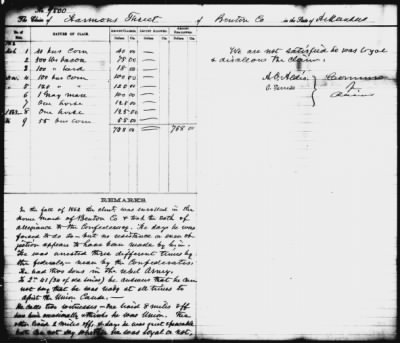 No 9500
The Claim of Harmons Threet of Benton Co in the State of Arkansas
NATURE OF CLAIM. AMOUNT CLAIMED. AMOUNT ALLOWED. AMOUNT DISALLOWED.
Dolls. Cts. Dolls. Cts. Dolls. Cts.
1862
1 40 bus Corn 40 00
2 300 lbs bacon 75 00
3 100 " lard 18 00
Nov. 4 100 bus corn 100 00
" 5 120 " " 120 00
" 6 1 Gray mare 100 00
" 7 One horse 125 00
1863 8 One horse 125 00
9 55 bus corn 55 00
758 00 758 00
We are not satisfied he was loyal
& disallow the claim.
A. O. Aldis
O. Ferriss
Commrs
of
Claims
REMARKS
In the fall of 1862 the clmt. was enrolled in the
home guard of Benton Co & took the oath of
allegiance to the Confederacy. He says he was
forced to do so – but no resistance or even ob-
jection appears to have been made by him.
He was arrested three different times by
the federals – never by the Confederates.
He had two sons in the rebel Army.
he answers that he can
not say that he was ready at all times to
the Union Cause. –
He calls two witnesses – One lived 8 miles off
him occasionally & thinks he was Union. The
other lived 2 miles off & says he was quiet & peaceable
but can not say whether he was loyal or not.